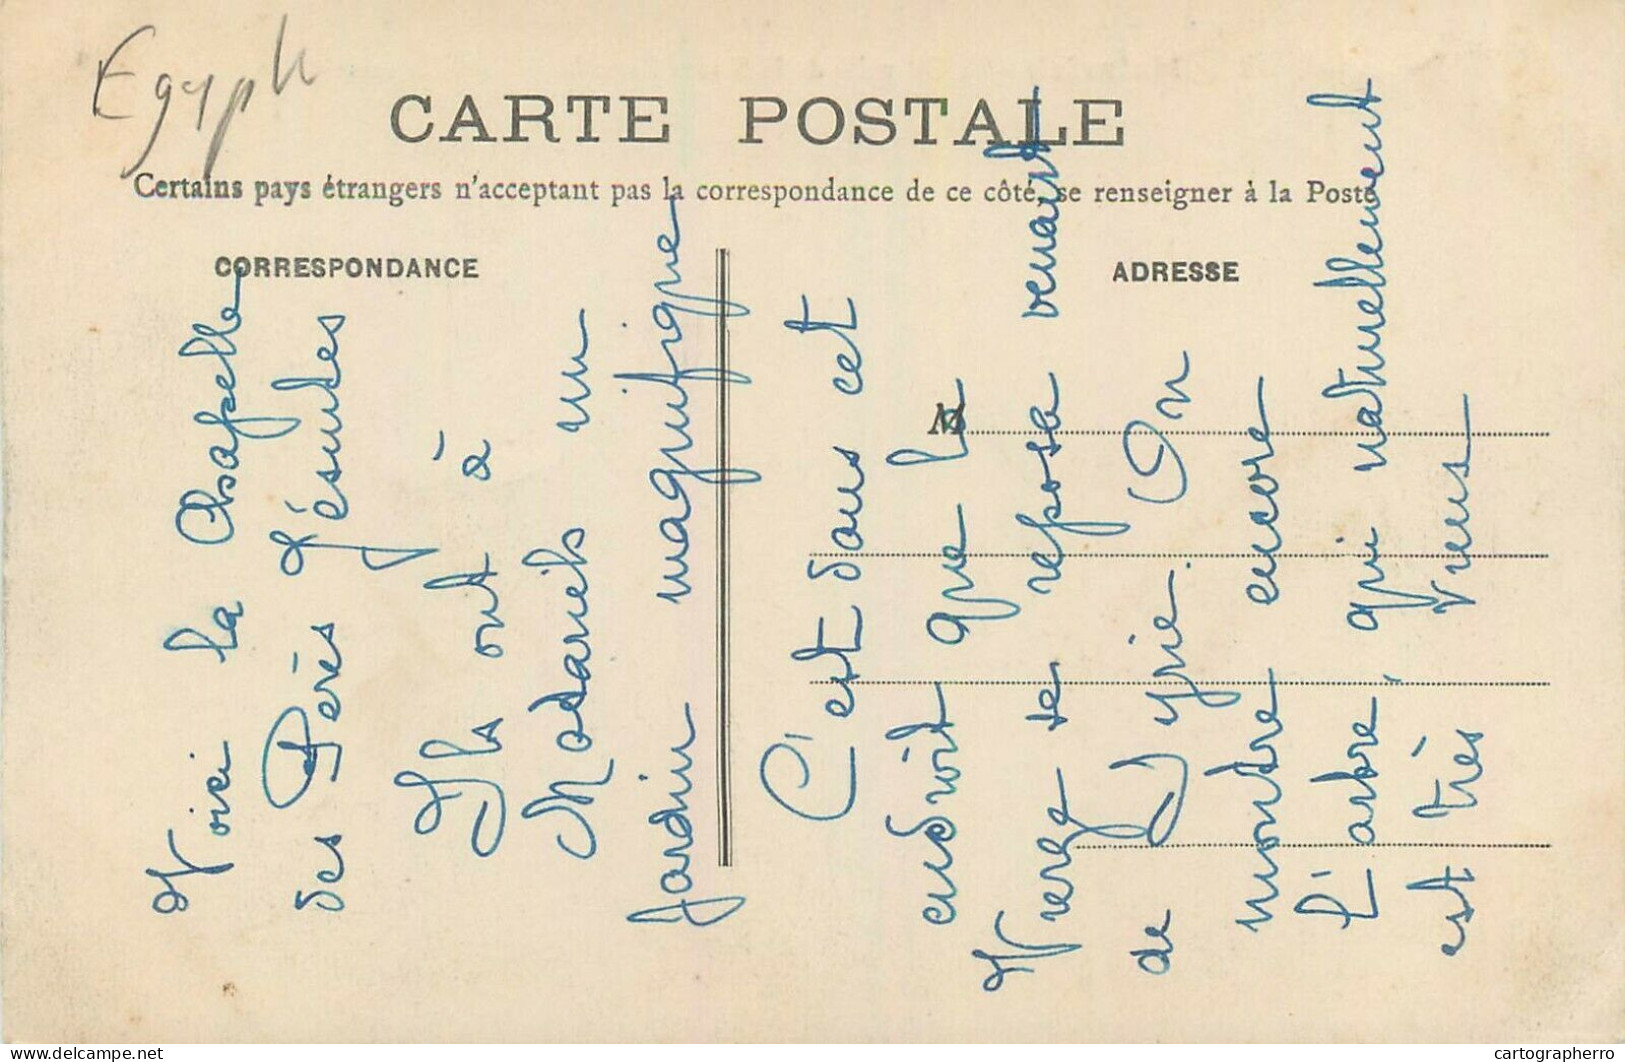 Egypte
CARTE POSTALE
Certains pays étrangers n'acceptant pas la correspondance de ce côté, se renseigner à la Poste
CORRESPONDANCE
ADRESSE
M
Voici la Chapelle
des Pères Jésuites
Ils ont à
Matarieh un
jardin magnifique
C'est dans cet
endroit que la
Vierge se reposa venant
de Syrie. On
montre encore
l'arbre, qui naturellement
est très vieux
delcampe.net
cartographerro